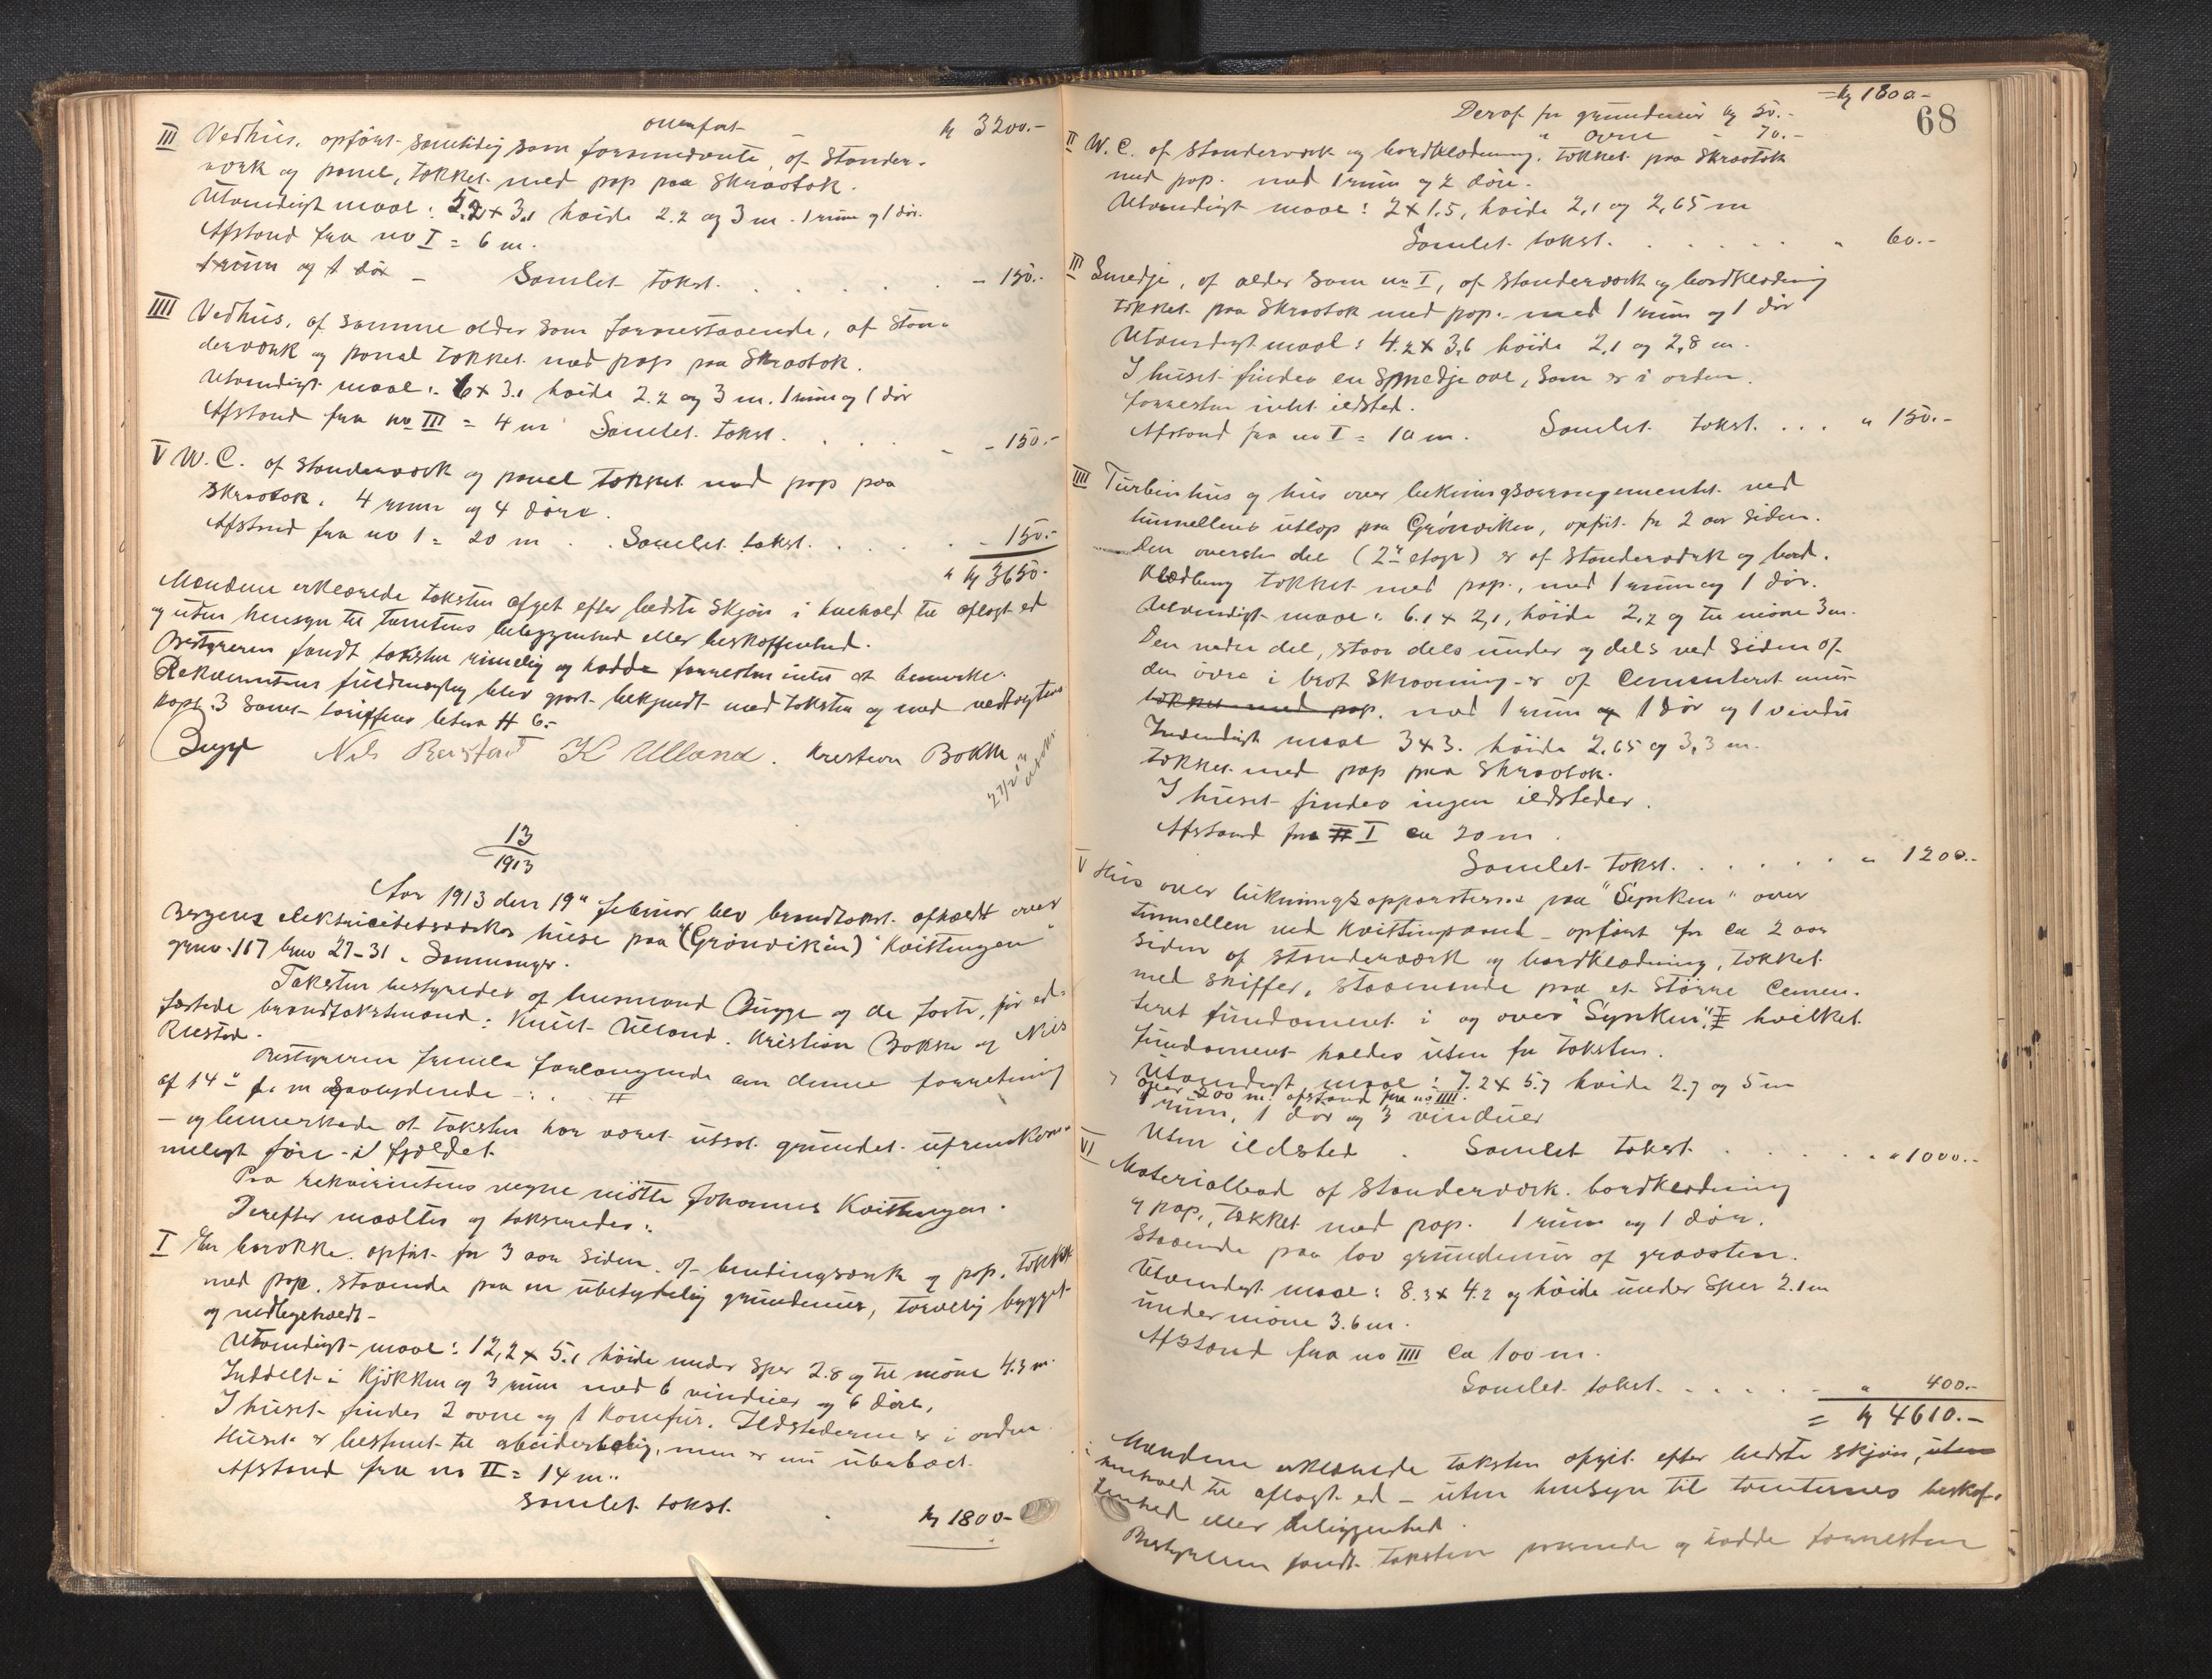 overført kr 3200.-
III Vedhus, opført samtidig som foranmeldte, af stander-
værk og panel, tækket med pap paa skraatak.
Utvendigt maal: 5.2 x 3.1 høide 2.2 og 3 m. 1 rum og 1 dør.
Afstand fra no I = 6 m.
1 rum og 1 dør - Samlet takst. . . . . . - 150.-
IIII Vedhus, af samme alder som førnevnte, af stan-
derværk og panel tækket med pap paa skraatak.
Utvendigt maal: 6 x 3.1 høide 2.2 og 3 m. 1 rum og 1 dør
Afstand fra no III = 4 m Samlet takst. . . . - 150.-
V W.C. af standerværk og panel tækket med pap paa
skraatak. 4 rum og 4 døre.
Afstand fra no 1 = 20 m . Samlet takst. . . . . - 150.-
" kr 3650.-
Mændene erklærede taksten afget efter bedste skjøn i henhold til aflagt ed
og uten hensyn til tomtens beliggenhed eller beskaffenhed.
Bestyreren fandt taksten rimelig og hadde forresten intet at bemerke.
Rekvirentens fuldmægtig blev gjort bekjendt med taksten og med vedtægtens
kap. 3 samt tariffens litra H 6.-
Bugge Nils Røistad K Ulland. Kristian Bokke
27/2 13
13
1913
Aar 1913 den 19de februar blev brandtakst afholdt over
Bergens elektricitetsverks huse paa (Grønviken) "Kvittingen"
gnr. 117 bno 27-31 . Samnanger.
Taksten bestyredes af lensmand Bugge og de faste, før ed-
fæstede brandtakstmænd: Knut Ulland. Kristian Bokke og Nils
Røistad.
Bestyreren fremla forlangende om denne forretning
af 14de f. m saalydende -:. #
- og bemerkede at taksten har været utsat grundet ufremkom-
meligt føre i fjeldet
Paa rekvirentens vegne møtte Johannes Kvittingen.
Derefter maaltes og takseredes:
I En barakke. opført for 3 aar siden. af bindingsverk og pap. tækket
med pap. staaende paa en ubetydelig grundmur, forøvrig bygget
og vedligeholdt-
Utvendigt maal: 12,2 x 5.1 høide under sper 2.8 og til møne 4.3 m.
Inddelt i kjøkken og 3 rum med 6 vinduer og 6 døre,
I huset findes 2 ovne og 1 komfur. Ildstederne er i orden
Huset er bestemt til arbeiderbolig, men er nu ubeboet.
Afstand fra no II = 14 m..
Samlet takst. . kr 1800.-
= kr 1800.-
68
Deraf for grundmur kr 50.-
" " ovne - 70.-
II W.C. af standerværk og bordklædning. tækket paa skraatak
med pap. med 1 rum og 2 døre.
Utvendigt maal: 2 x 1.5, høide 2,1 og 2,65 m
Samlet takst. . . . . . . " 60.-
III Smedje, af alder som no I, af standerværk og bordklædning
tækket paa skraatak med pap. med 1 rum og 1 dør
Utvendigt maal: 4.2 x 3,6 høide 2,1 og 2,8 m.
I huset findes en smedje avl, som er i orden.
forresten intet ildsted.
Afstand fra no I = 10 m. Samlet takst. . . . " 150.-
IIII Turbinhus og hus over lukningsarrangementet ved
tunnellens utløp paa Grønviken, opført for 2 aar siden.
Den øverste del (2den etage) er af standerværk og bord-
klædning tækket med pap., med 1 rum og 1 dør.
Utvendigt maal: 6.1 x 2,1, høide 2,2 og til møne 3 m.
Den nedre del, staar dels under og dels ved siden af
den øvre i brat skraaning er af cementeret mur
tækket med pap. med 1 rum og 1 dør og 1 vindu
Indvendigt maal 3 x 3. høide 2,65 og 3,3 m.
tækket med pap paa skraatak.
I huset findes ingen ildsteder.
Afstand fra I ca 20 m .
Samlet takst. . . . . . " 1200.-
V Hus over lukningsapparaterne paa "Synken" over
tunnellen ved Kvittingvand - opført for ca 2 aar
siden af standerværk og bordklædning, tækket
med skiffer, staaende paa et større cemen-
teret fundament i og over "Synken", hvilket
fundament holdes uten for taksten.
Utvendigt maal: 7.2 x 5.7 høide 2.7 og 5 m
over 200 m. afstand fra no IIII.
1 rum, 1 dør og 3 vinduer
Uten ildsted . Samlet takst. . . . . . " 1000.-
VI Materialbod af standerværk. bordklædning
og pap., tækket med pap. 1 rum og 1 dør.
Staaende paa lav grundmur af graasten.
Utvendigt maal: 8.3 x 4.2 og høide under sper 2.1 m
under møne 3.6 m.
Afstand fra no IIII ca 100 m.
Samlet takst. . . . . . " 400.-
= kr 4610.-
Mændene erklærede taksten afgit efter bedste skjøn, uten
henhold til aflagt ed - uten hensyn til tomternes beskaf-
fenhed eller beliggenhed.
Bestyreren fandt taksten passende og hadde forresten